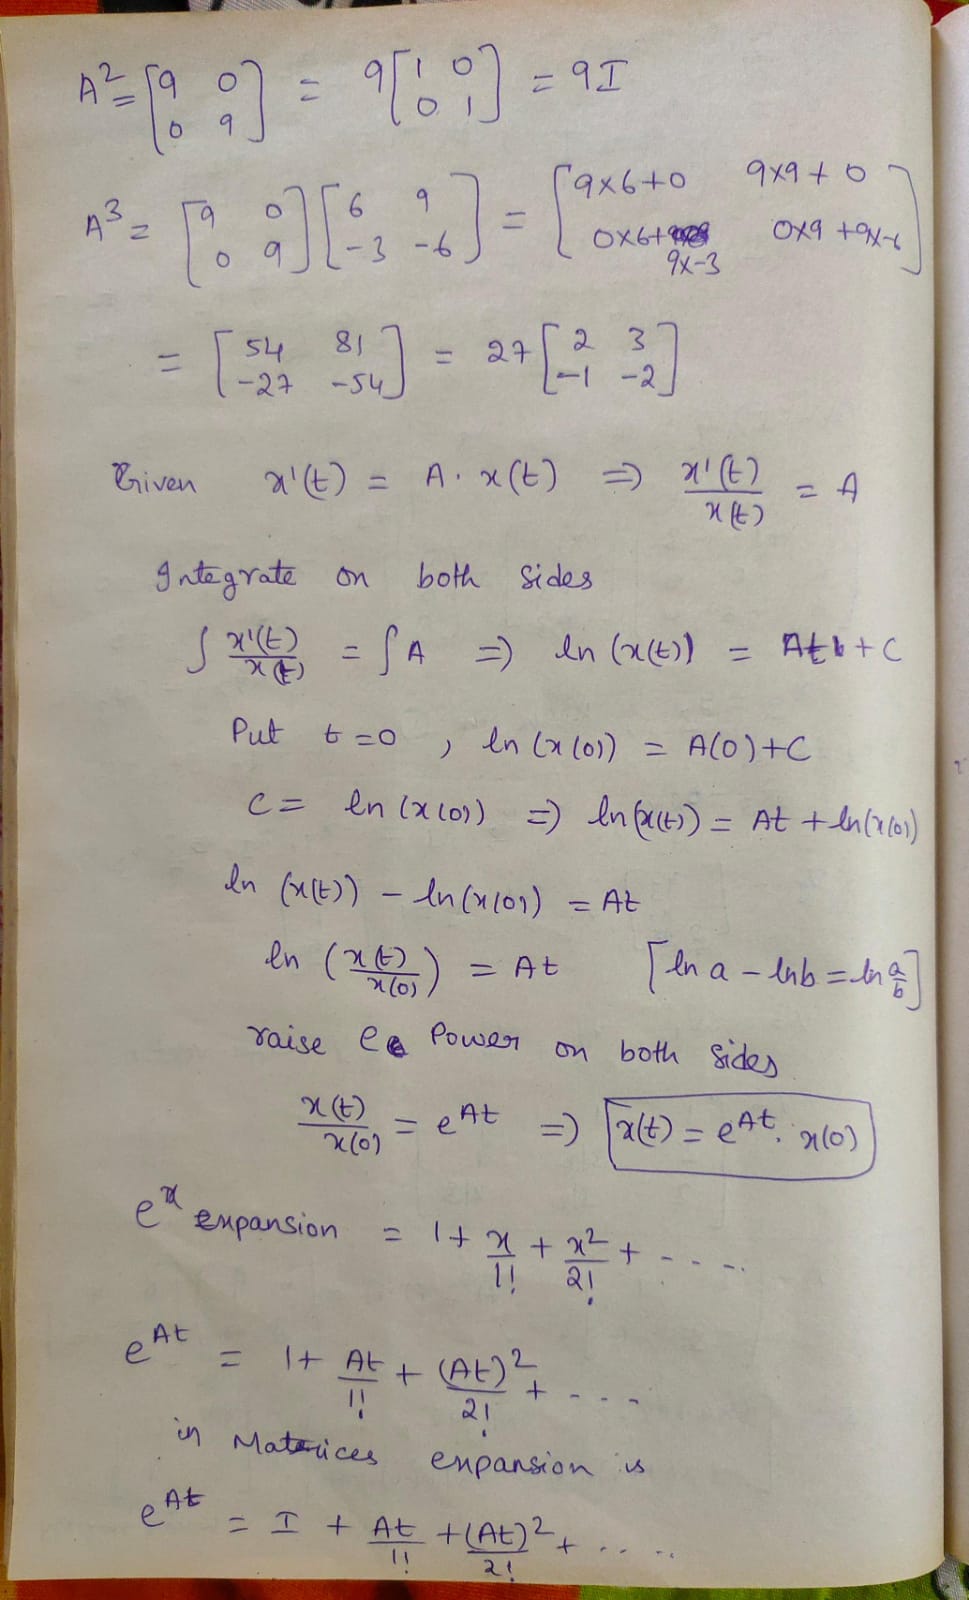 A² = [9 0; 0 9] = 9[1 0; 0 1] = 9I
A³ = [9 0; 0 9] [6 9; -3 -6] = [9x6+0 9x9+0; 0x6+9x-3 0x9+9x-6]
= [54 81; -27 -54] = 27[2 3; -1 -2]
Given x'(t) = A. x(t) => x'(t)/x(t) = A
Integrate on both sides
∫ x'(t)/x(t) = ∫A => ln(x(t)) = At + C
Put t=0, ln(x(0)) = A(0)+C
C = ln(x(0)) => ln(x(t)) = At + ln(x(0))
ln (x(t)) - ln(x(0)) = At
ln (x(t)/x(0)) = At [ln a - lnb = ln a/b]
raise e Power on both sides
x(t)/x(0) = e^At => x(t) = e^At. x(0)
e^x expansion = 1+ x/1! + x²/2! + - - - -.
e^At = 1+ At/1! + (At)²/2! + - - - -
in Matrices expansion is
e^At = I + At/1! + (At)²/2! + .. .. ..